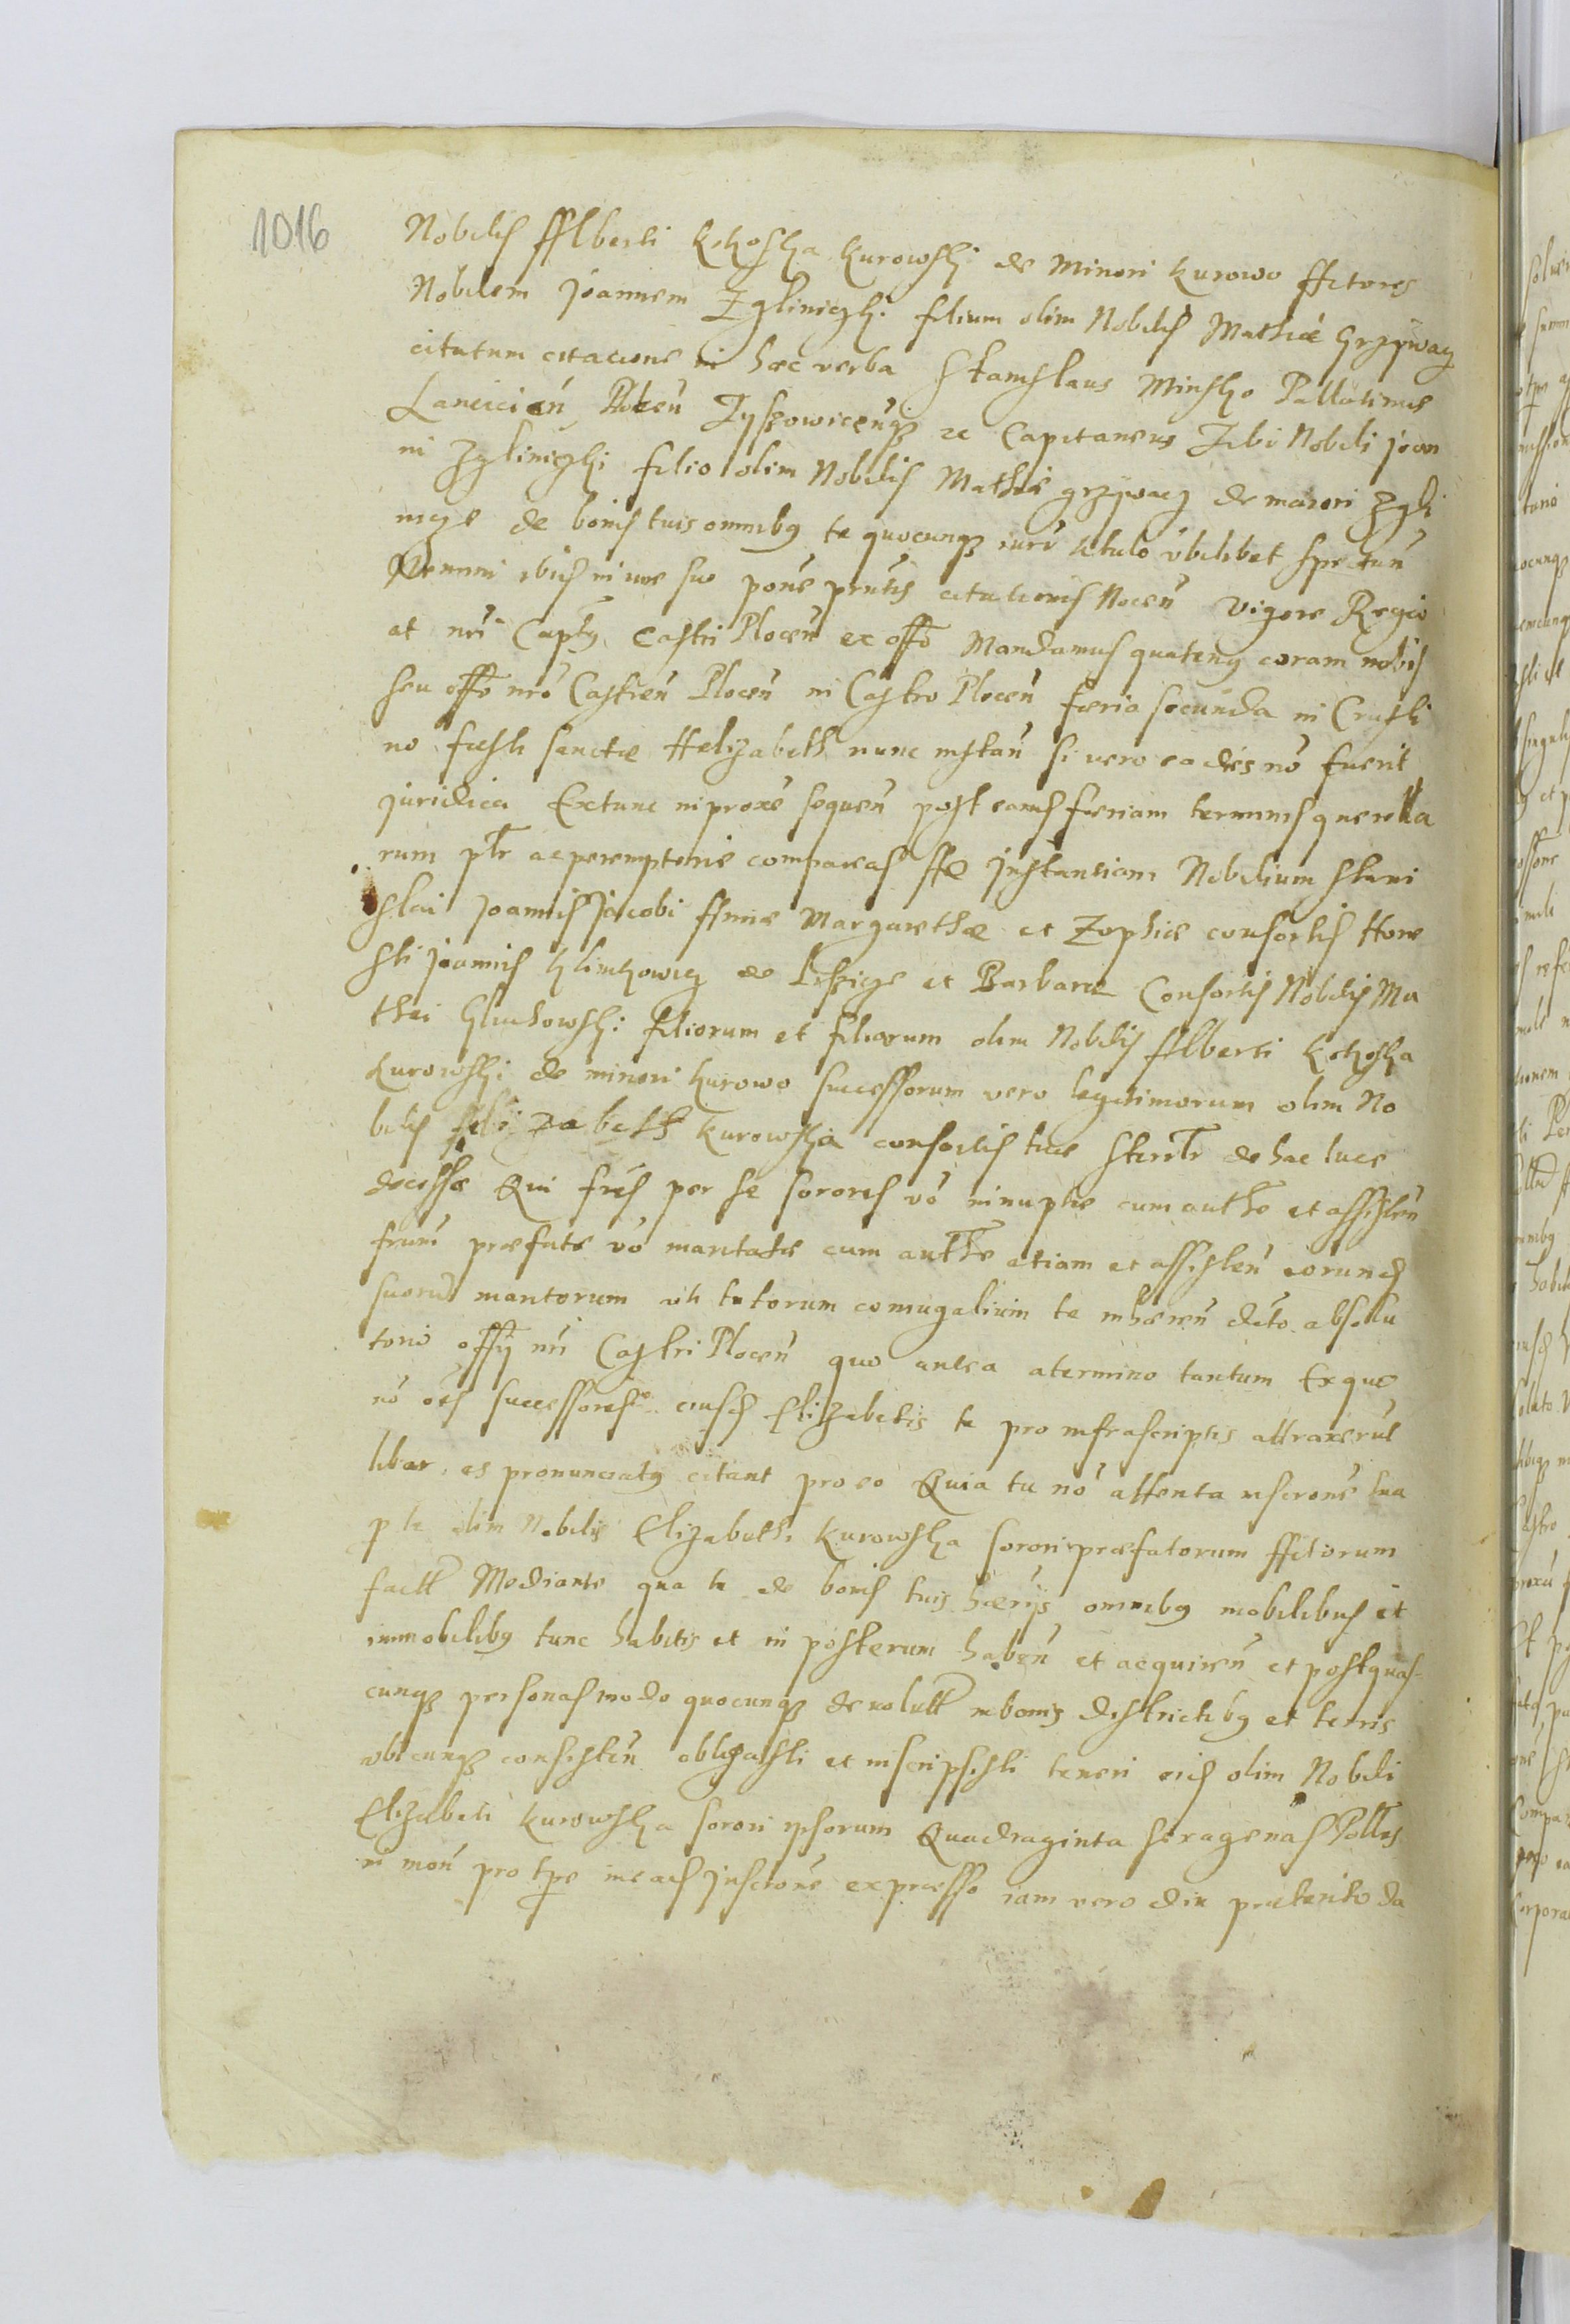 1016
Nobilis Alberti Kokoszka Kurowski de Minori Kurowo Actores
Nobilem Joannem Zgliniczki filium olim Nobilis Mathiae Grzywacz
citatum citacione in haec verba Stanislaus Minsko Pallatinus
Lancicień Płoceń Tyszowiceńq3 zc Capitaneus Tibi Nobili Joan
ni Zgliniczki filio olim Nobilis Mathiae grzywacz de maiori Zgli
nicze de bonis tuis omnibus te quocunq3 iuris titulo ubilibet spectań
Nemini ibid in iure suo poné pńtis citationis Noceń Vigore Regio
at nri Captus Castri Ploceń ex offo Mandamus quatenus coram nobis
seu offo nro Castreń Ploceń in Castro Ploceń feria secunda in Crasti
no festi sanctae Helizabeth nunc instań si vero ea dies no fuerit
juridica Extunc in proxe sequeń post eand feriam terminis querella
rum ptr ac peremptorie compareas Ad Instantiam Nobilium Stani
slai Joannis Jacobi Annae Margarethae et Zophiae consortis Hone
sti Joannis Klimkowicz de et Barbarae Consortis Nobilis Ma
thei Gluchowski filiorum et filiarum olim Nobilis Alberti Kokoszka
Kurowski de minori Kurowo successorum vero legitimorum olim No
bilis Elizabeth Kurowska consortis tuae sterilr de hac luce
decessae Qui fres per se sorores vo innuptae cum authe et assisteń
frum praefatae vo maritatae cum authe etiam et assisteń eorund
suorum maritorum uti tutorum coniugalium te inhaereń dcto absolu
torio offy nri Castri Ploceń quo antea a termino tantum Ex quo
no oes successores eiusd Elizabetis te pro infrascriptis attraxerut
liber es pronunciatus citant pro eo Quia tu no attenta inscrone tua
p te olim Nobilis Elizabethi Kurowska sorori praefatorum Actorum
facta Mediante qua te de bonis tuis haerijs omnibus mobilibus et
immobilibus tunc habitis et in posterum habeń et acquireń et post quas
cunq3 personas modo quocunq3 devolutt in bonis districtibus et terris
ubicunq3 consisteń obligasti et inscripsisti teneri eid olim Nobili
Elizabeti Kurowska sorori ipsorum Quadraginta sexagenas Polles
in moń pro tpe in ead Inscrone expresso iam vero diu praeterito da